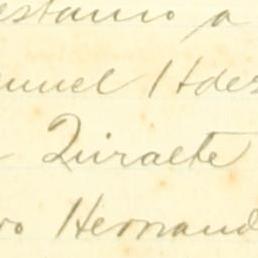 estamo a
nuel Hdes
Quiralte
vo Hernand